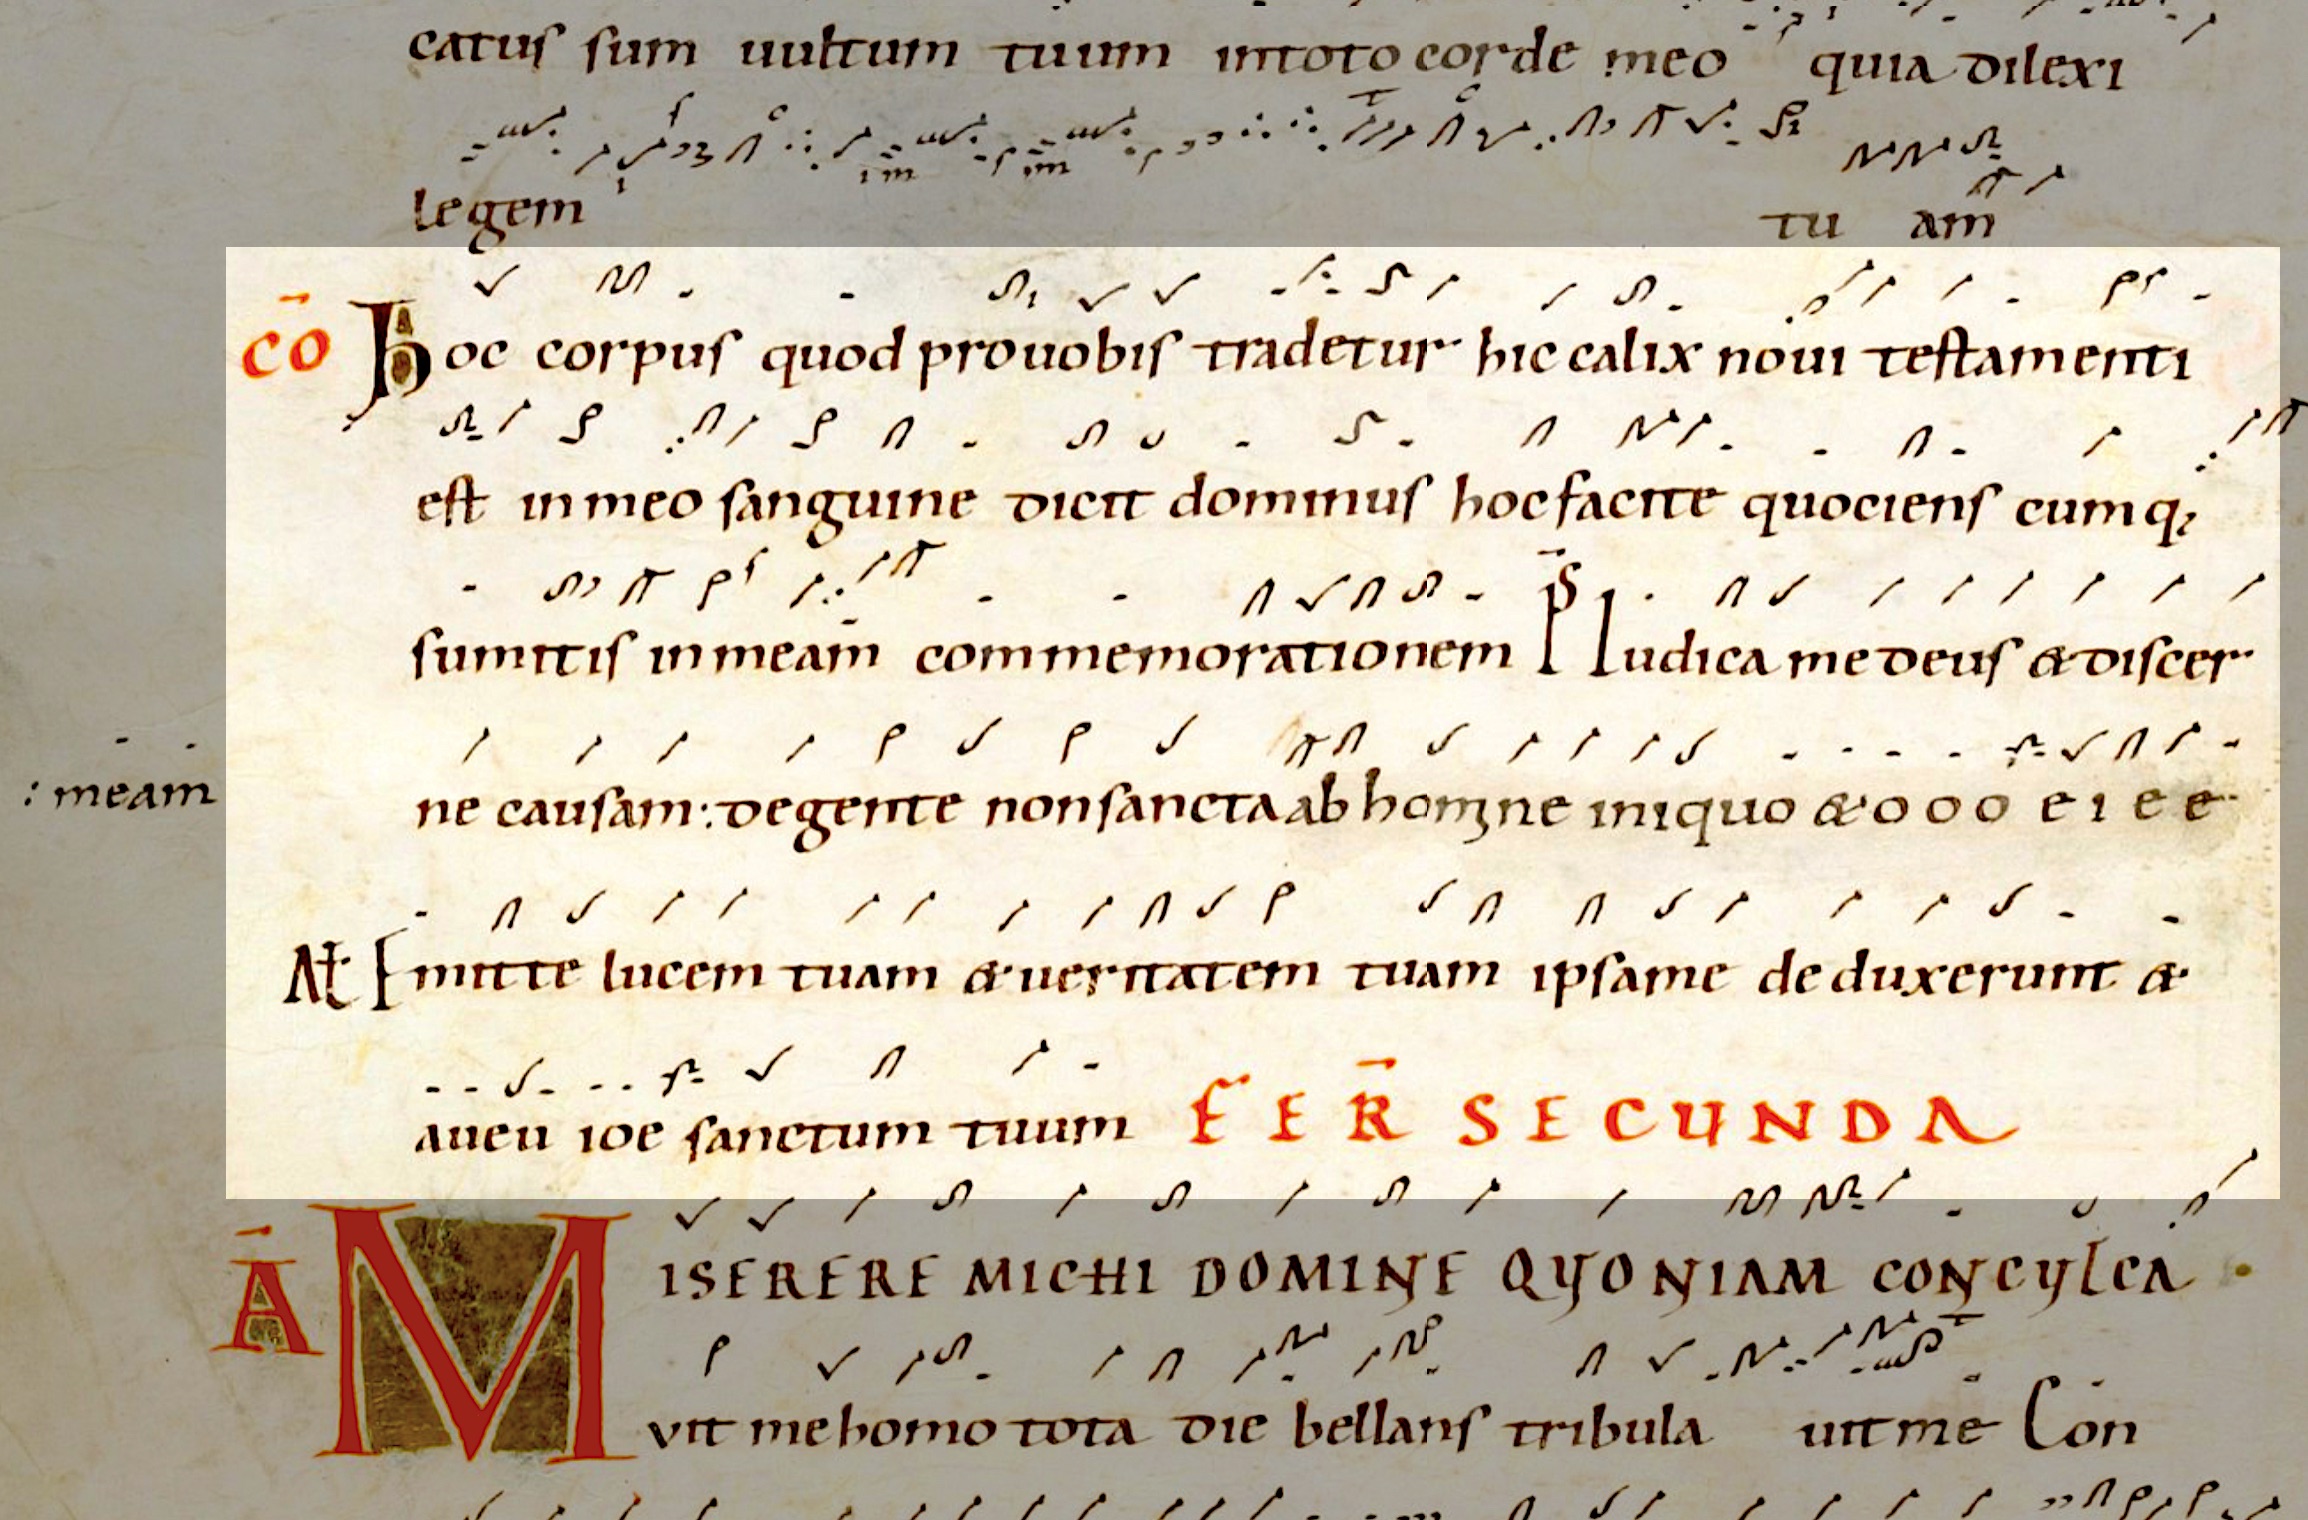 catus sum uultum tuum intoto corde meo quia dilexi
legem tu am̄
c̄o hoc corpus quod prouobis tradetur hic calix noui testamenti
est inmeo sanguine dicit dominus hoc facite quociens cumq;
sumitis inmeam̄ commemorationem p̄s Iudica me deus & discer
: meam̄ ne causam: de gente non sancta ab homine iniquo & o o o e i e e
At Emitte lucem tuam & ueritatem tuam ipsa me deduxerunt &
aueu ioe sanctum tuum FER̄ SECUNDA
Ā MISERERE MICHI DOMINE QUONIAM CONCULCA
uit me homo tota die bellans tribula uit mē Con